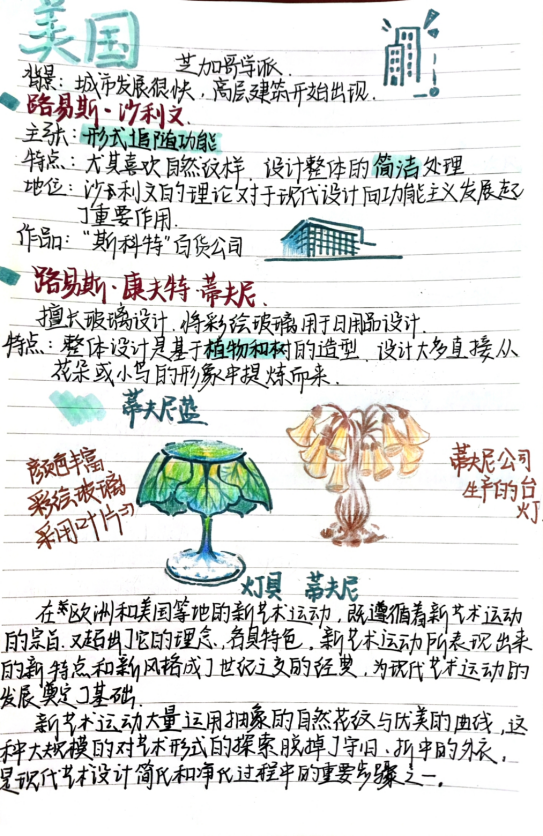 美国
芝加哥学派.
背景: 城市发展很快, 高层建筑开始出现.
路易斯·沙利文.
主张: 形式追随功能
特点: 尤其喜欢自然纹样, 设计整体的简洁处理
地位: 沙利文的理论对于现代设计向功能主义发展起
了重要作用.
作品: “斯科特”百货公司
路易斯·康夫特·蒂夫尼.
擅长玻璃设计, 将彩绘玻璃用于日用品设计.
特点: 整体设计是基于植物和树的造型, 设计大多直接从
花朵或小鸟的形象中提炼而来.
蒂夫尼蓝
颜色丰富
彩绘玻璃
采用叶片的
蒂夫尼公司
生产的台
灯
灯具 蒂夫尼
在欧洲和美国等地的新艺术运动, 既遵循着新艺术运动
的宗旨. 又拓出了它的理念, 各具特色. 新艺术运动所表现出来
的新特点和新风格成了世纪之交的经典, 为现代艺术运动的
发展奠定了基础.
新艺术运动大量运用抽象的自然花纹与优美的曲线, 这
种大规模的对艺术形式的探索脱掉了守旧、折中的外衣,
是现代艺术设计简化和净化过程中的重要步骤之一.